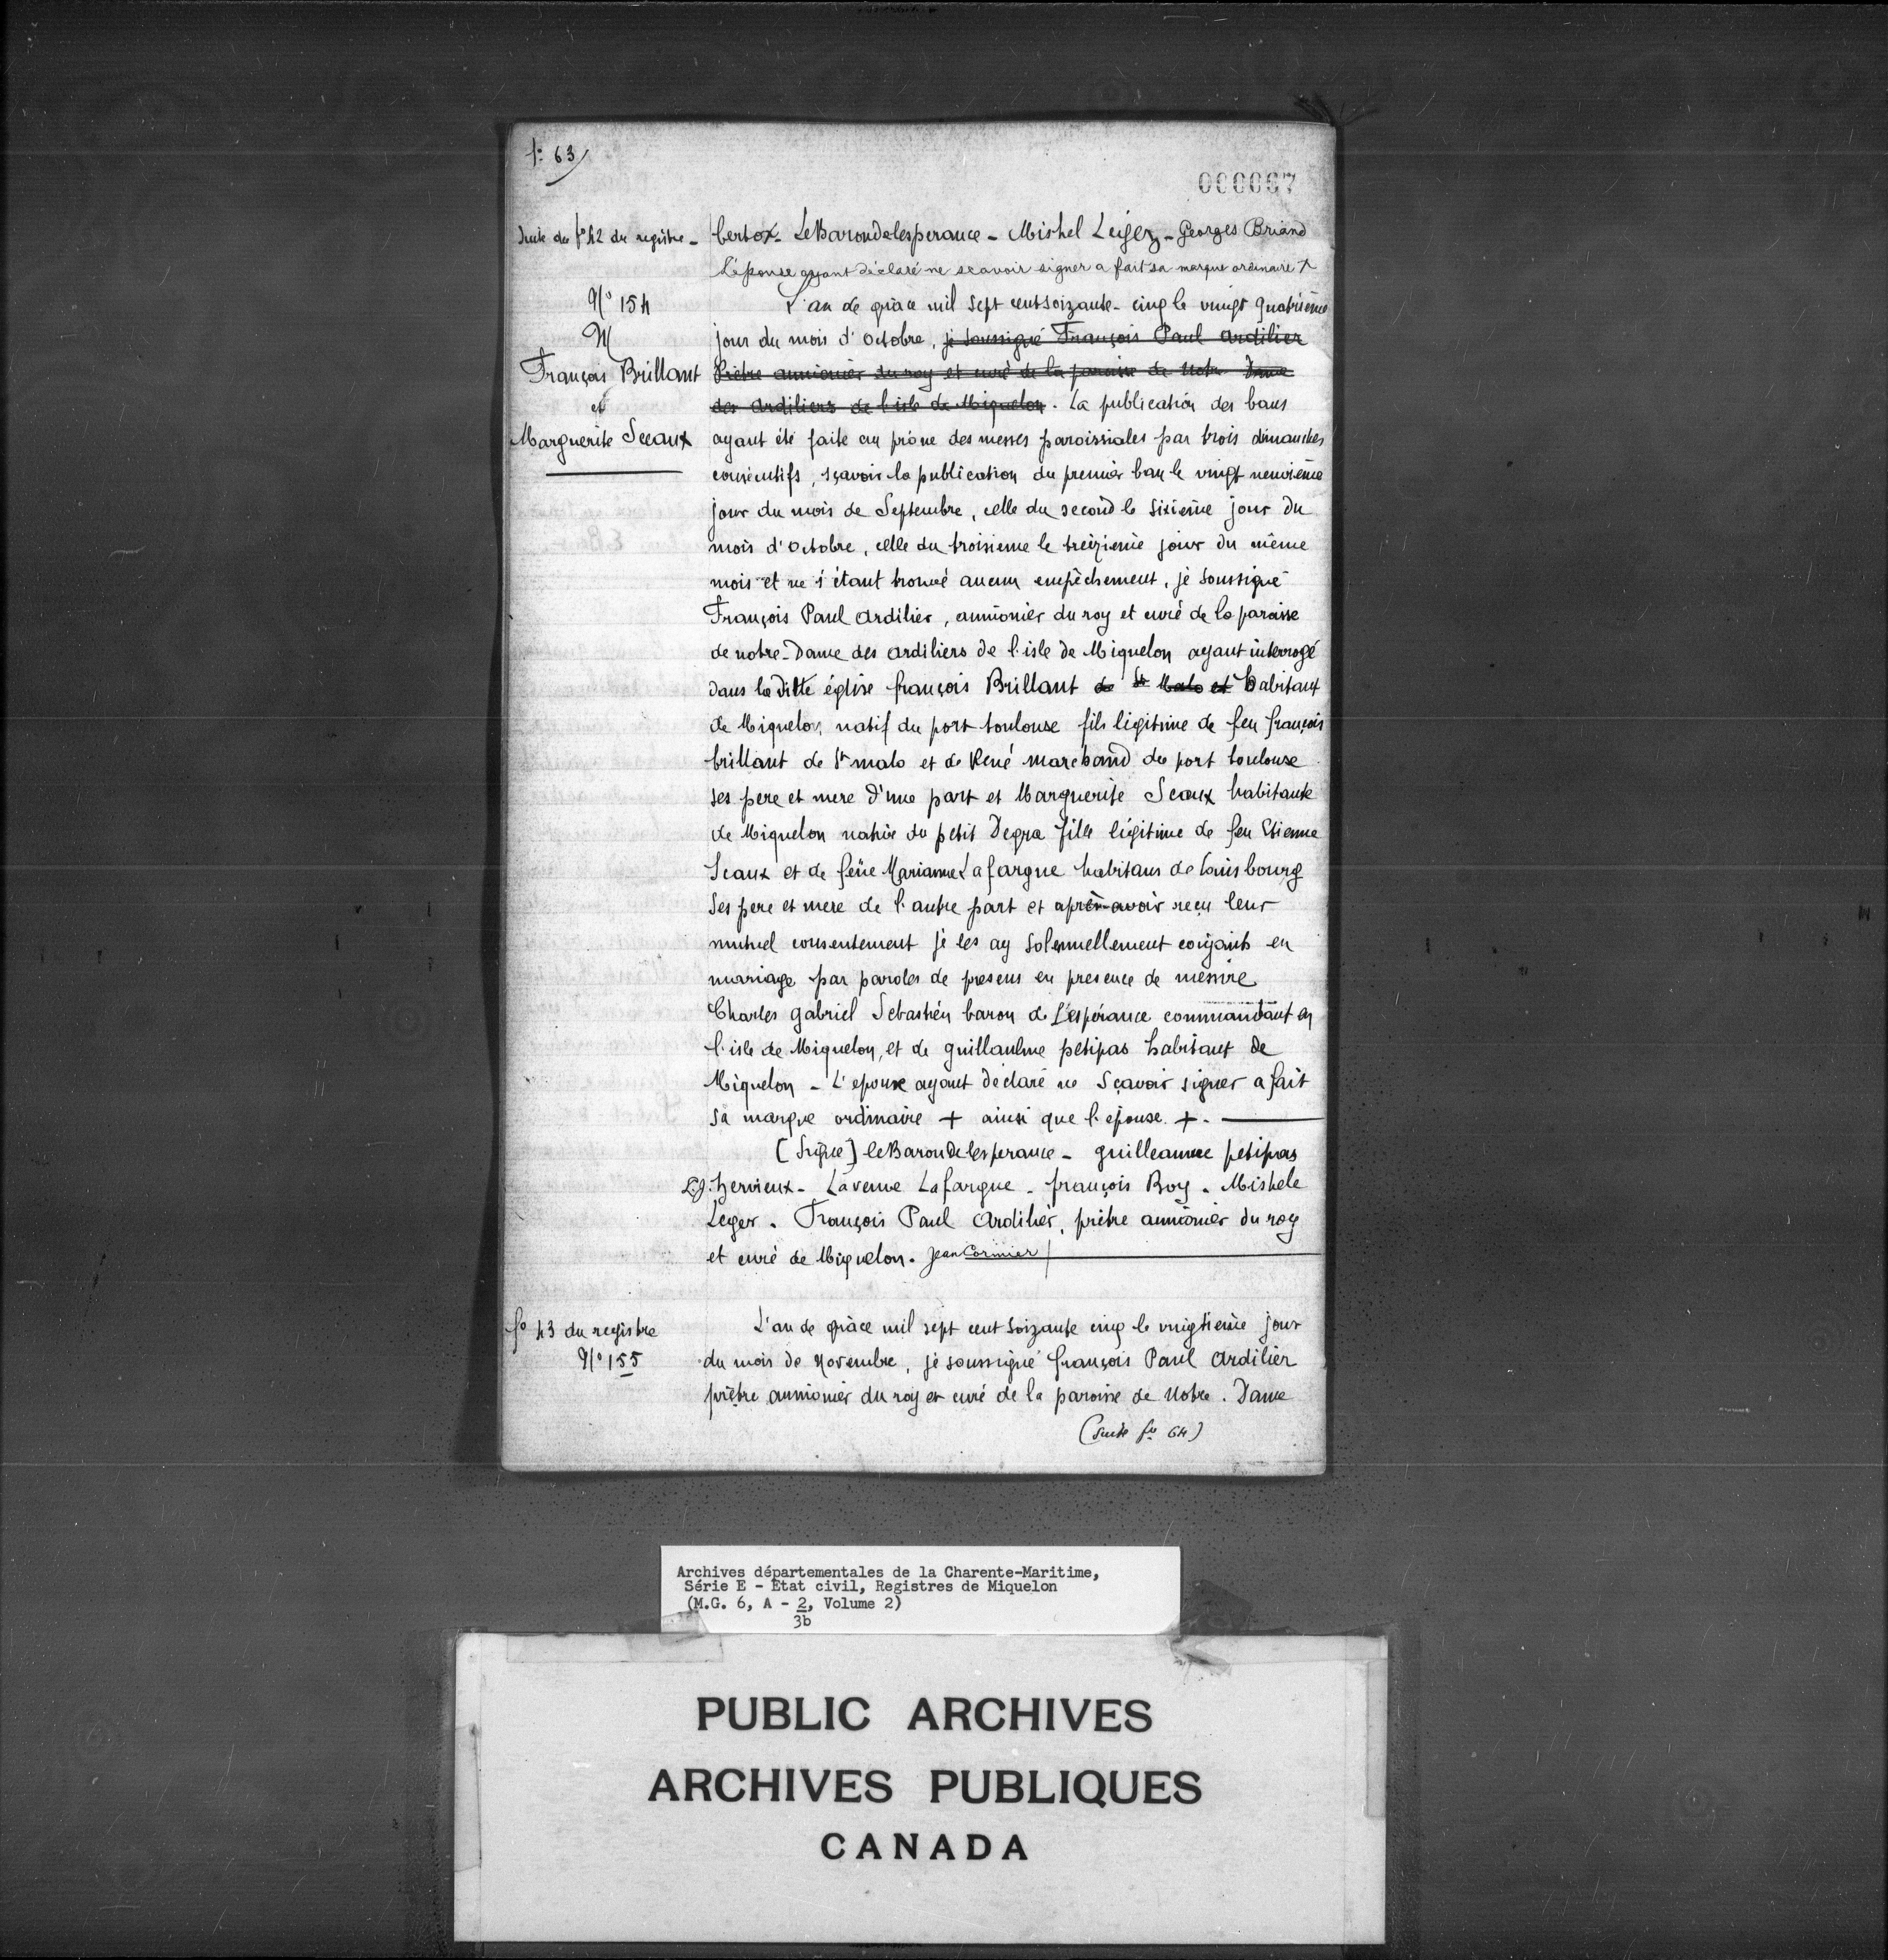 fo 63
000067
Suite du fo 42 du registre -
bertox - LeBarondelesperance - Mishel Leiger - Georges Briand
L'épouse ayant déclaré ne scavoir signer a fait sa marque ordinaire +
No 154
M
François Brillant
et
Marguerite Sceaux
L'an de grâce mil sept cent soizante - cinq le vingt quatrième
jour du mois d'octobre, je soussigné François Paul Ardilier
Prêtre aumônier du roy et curé de la paroisse de Notre Dame
des Ardiliers de l'isle de Miquelon. La publication des bans
ayant été faite au prône des messes paroissiales par trois dimanches
consécutifs, sçavoir la publication du premier ban le vingt neuvième
jour du mois de Septembre, celle du second le sixième jour du
mois d'octobre, celle du troisieme le treizième jour du même
mois et ne s'étant trouvé aucun empêchement, je soussigné
François Paul Ardilier, aumônier du roy et curé de la paroisse
de notre-Dame des Ardiliers de l'isle de Miquelon ayant interrogé
dans la ditte église françois Brillant de St Malo et habitant
de Miquelon natif du port toulouse fils légitime de feu françois
brillant de St malo et de René marchand du port toulouse
ses pere et mere d'une part et Marguerite Sceaux habitante
de Miquelon native du petit Degra fille légitime de feu Etienne
Sceaux et de feüe Marianne Lafargue habitans de Louisbourg
ses pere et mere de l'autre part et après avoir reçu leur
mutuel consentement je les ay solennellement conjoints en
mariage par paroles de presens en presence de messire
Charles gabriel Sebastien baron de L'espérance commandant en
l'isle de Miquelon, et de guillaulme petipas habitant de
Miquelon - L'epoux ayant déclaré ne sçavoir signer a fait
sa marque ordinaire + ainsi que l'epouse. +.
[Signé] leBarondelesperance - guilleaume petipas
L.J. hervieux - Laveuve Lafargue - françois Boy - Mishele
Leger. François Paul Ardilier, prêtre aumônier du roy
et curé de Miquelon. Jean Cormier
fo 43 du registre
No 155
L'an de grâce mil sept cent soizante cinq le vingtième jour
du mois de Novembre, je soussigné françois Paul Ardilier
prêtre aumonier du roy et curé de la paroisse de Notre. Dame
(Suite fo 64)
Archives départementales de la Charente-Maritime,
Série E - Etat civil, Registres de Miquelon
(M.G. 6, A - 2, Volume 2)
3b
PUBLIC ARCHIVES
ARCHIVES PUBLIQUES
CANADA